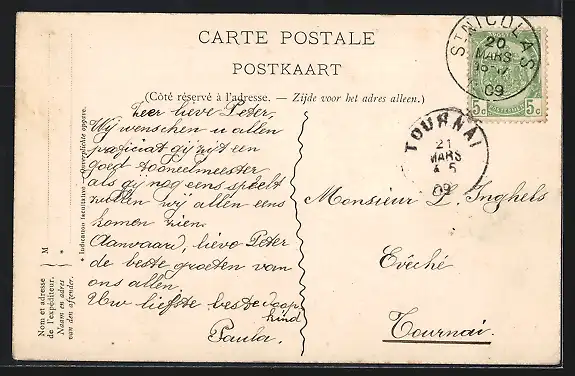 CARTE POSTALE
POSTKAART
(Côté réservé à l'adresse. — Zijde voor het adres alleen.)
ST NICOLAS
20
MARS
09
5c 5c
TOURNAI
21
MARS
5
09
Zeer lieve Peter,
Wij wenschen u allen
proficiat gij zijt een
goed tooneelmeester
als gij nog eens speelt
zullen wij allen eens
komen zien.
Aanvaard, lieve Peter
de beste groeten van
ons allen.
Uw liefste beste doop
kind
Paula.
Monsieur L. Inghels
Evêché
Tournai.
Nom et adresse
de l'expéditeur.
Naam en adres
van den afzender.
M
*
* Indication facultative — Onverplichte opgave.